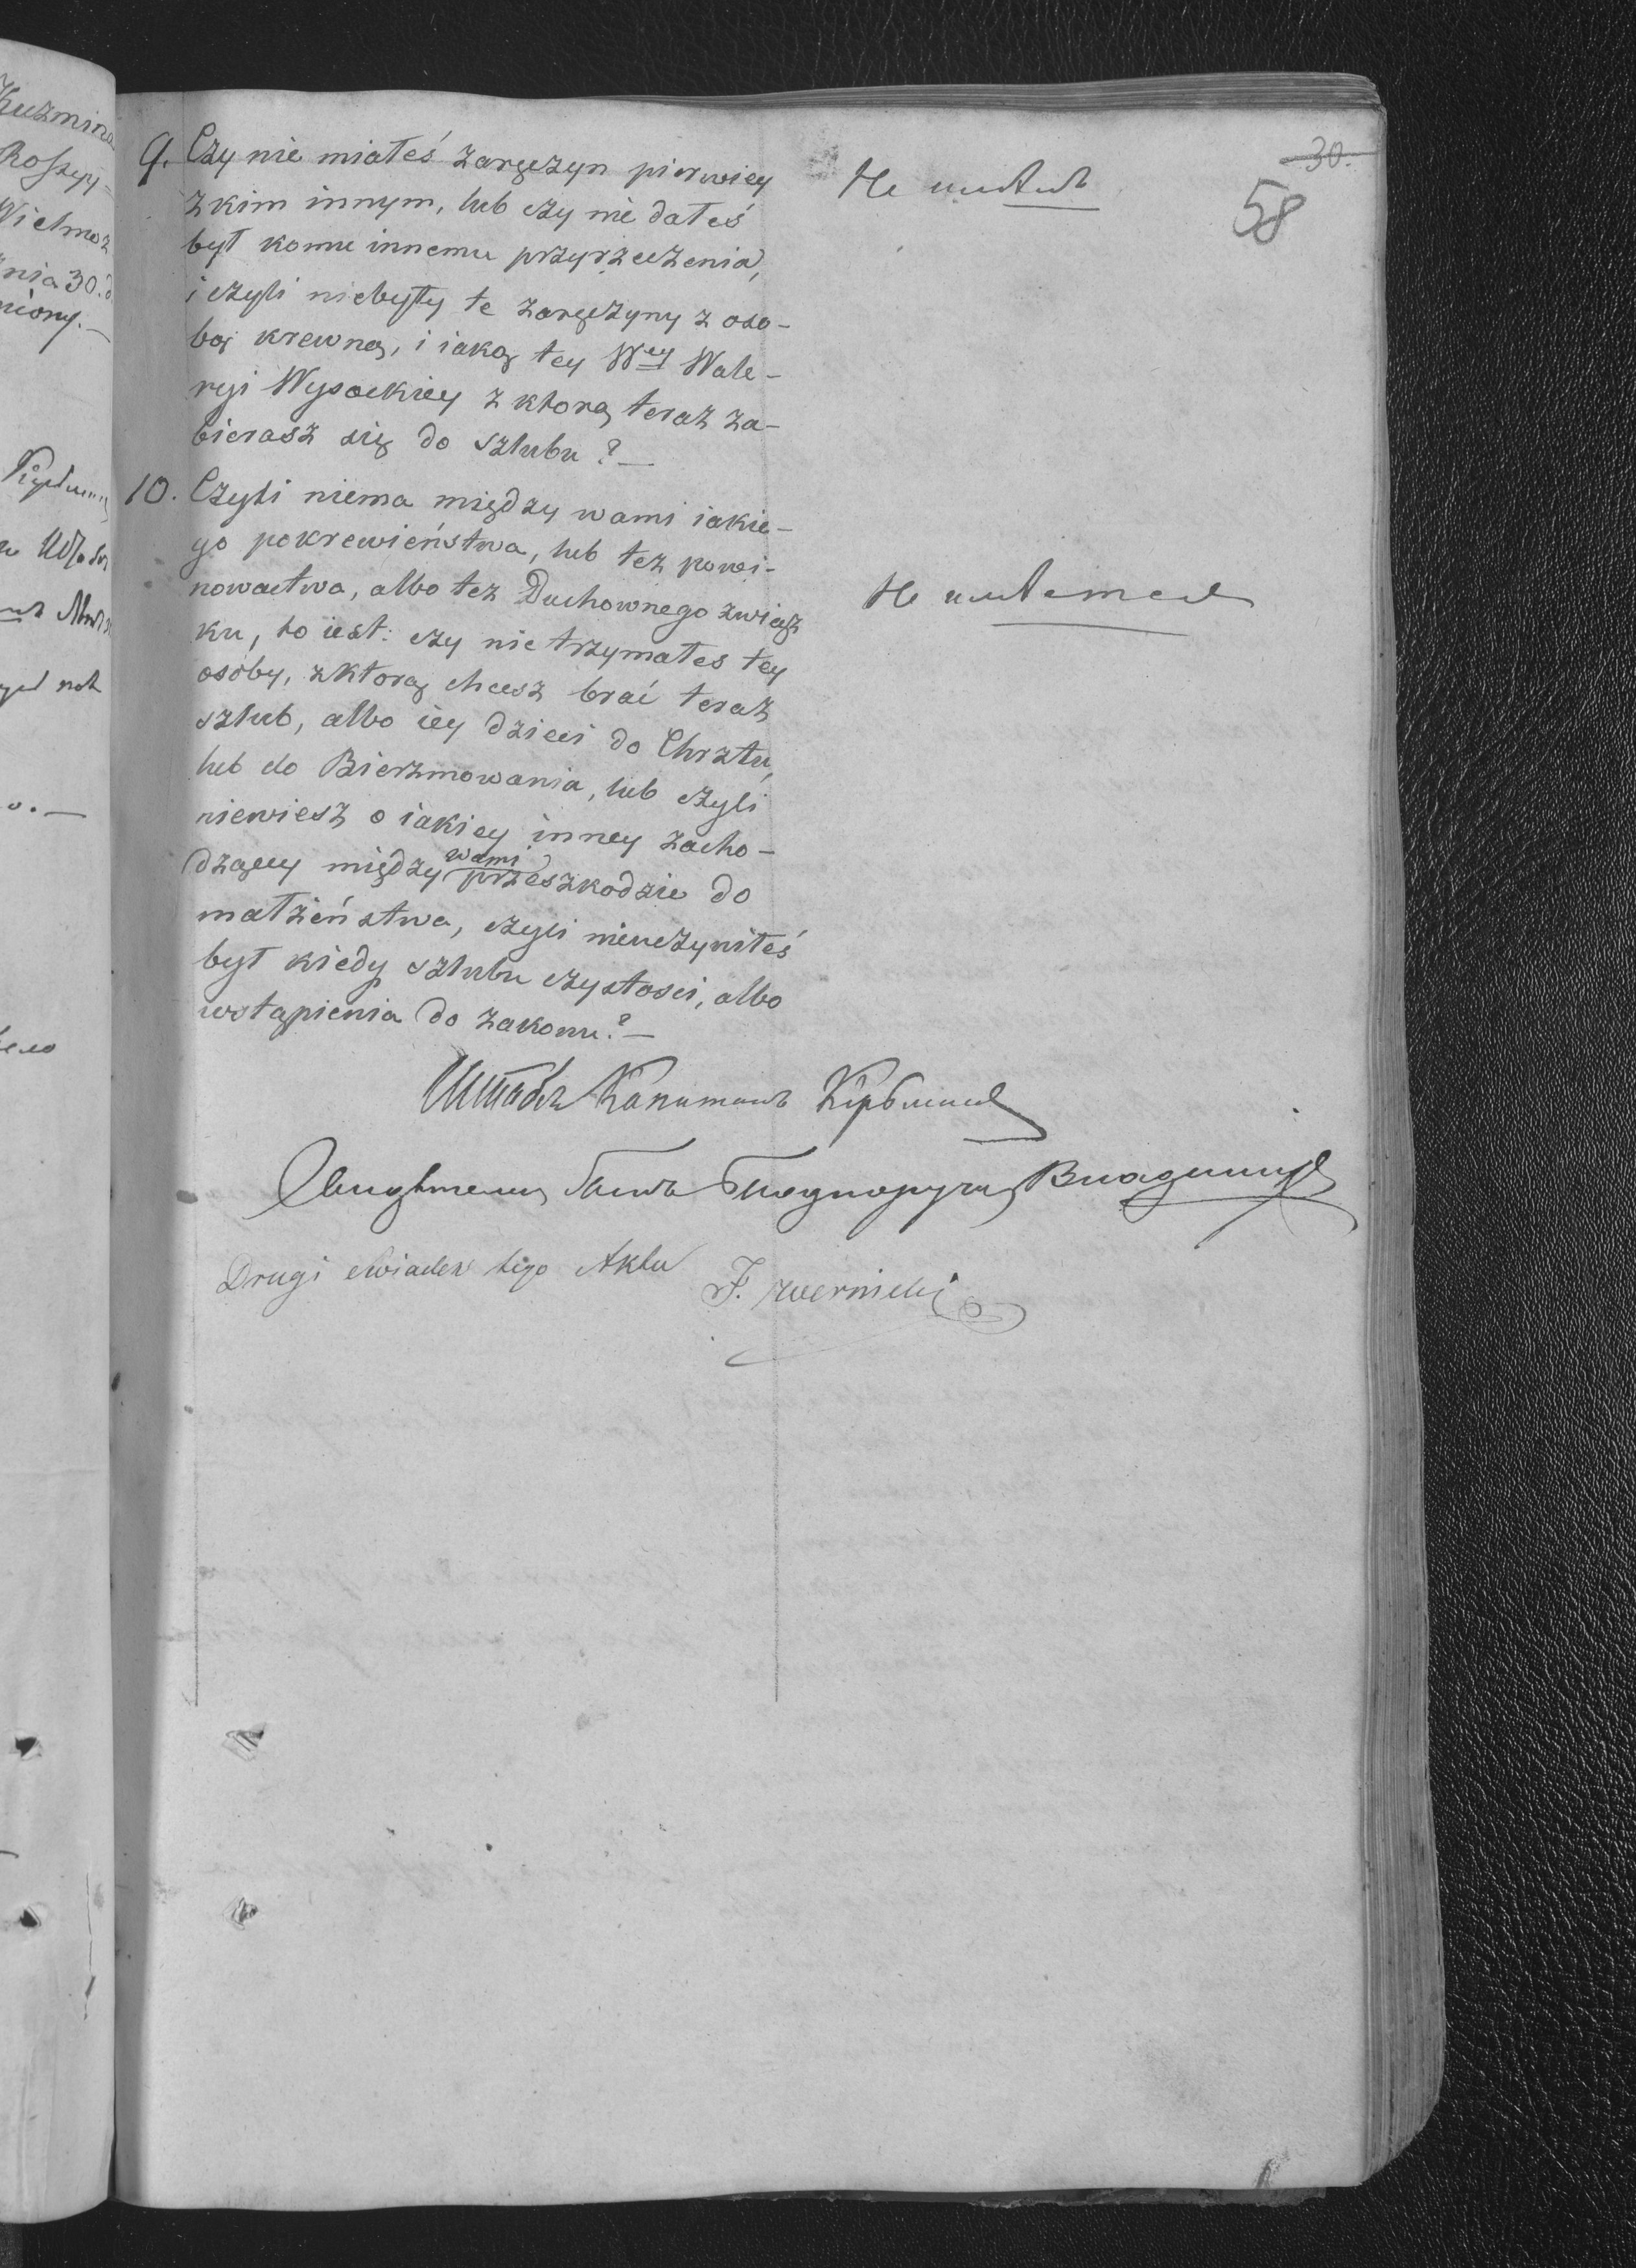 30.
58
9. Czy nie miałeś zaręczyn pierwiey
z kim innym, lub czy nie dałeś
był komu innemu przyrzeczenia,
i czyli niebyły te zaręczyny z oso-
bą krewną, i iaką tey Wey Wale-
ryi Wysockiey z ktorą teraz za-
bierasz się do szlubu ?—
Не имѣлъ
10. Czyli niema między wami iakie-
go pokrewieństwa, lub tez powi-
nowactwa, albo tez Duchownego związ
ku, to iest: czy nie trzymałes tey
osoby, z ktorą chcesz brać teraz
szlub, albo iey dzieci do Chrztu,
lub do Bierzmowania, lub czyli
niewiesz o iakiey inney zacho-
dzącey między wami przeszkodzie do
małżeństwa, czyli nieuczyniłeś
był kiedy szlubu czystosci, albo
wstąpienia do zakonu?—
Не имѣется
Штабсъ Капитанъ
Свидѣтелемъ былъ Подпоручикъ
Drugi swiadek tego Aktu J.
Kuzmina
Wielmoż
nia 30. d.
niony.—